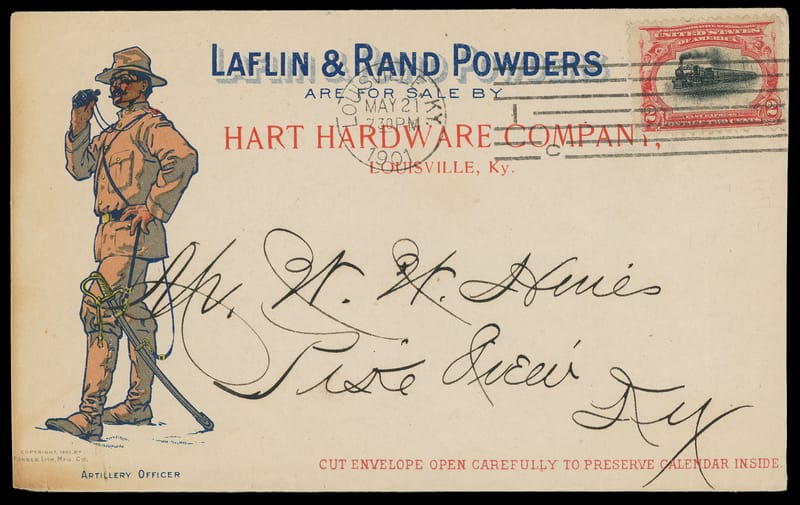 LAFLIN & RAND POWDERS
ARE FOR SALE BY
HART HARDWARE COMPANY,
LOUISVILLE, Ky.
LOUISVILLE, KY
MAY 21
2 30 PM
1901
1
C
UNITED STATES
OF AMERICA
2 2
Mr. W. W. Hines
View
Ky
COPYRIGHT, 1901, BY
FORBES LITH. MFG. CO.
ARTILLERY OFFICER
CUT ENVELOPE OPEN CAREFULLY TO PRESERVE CALENDAR INSIDE.